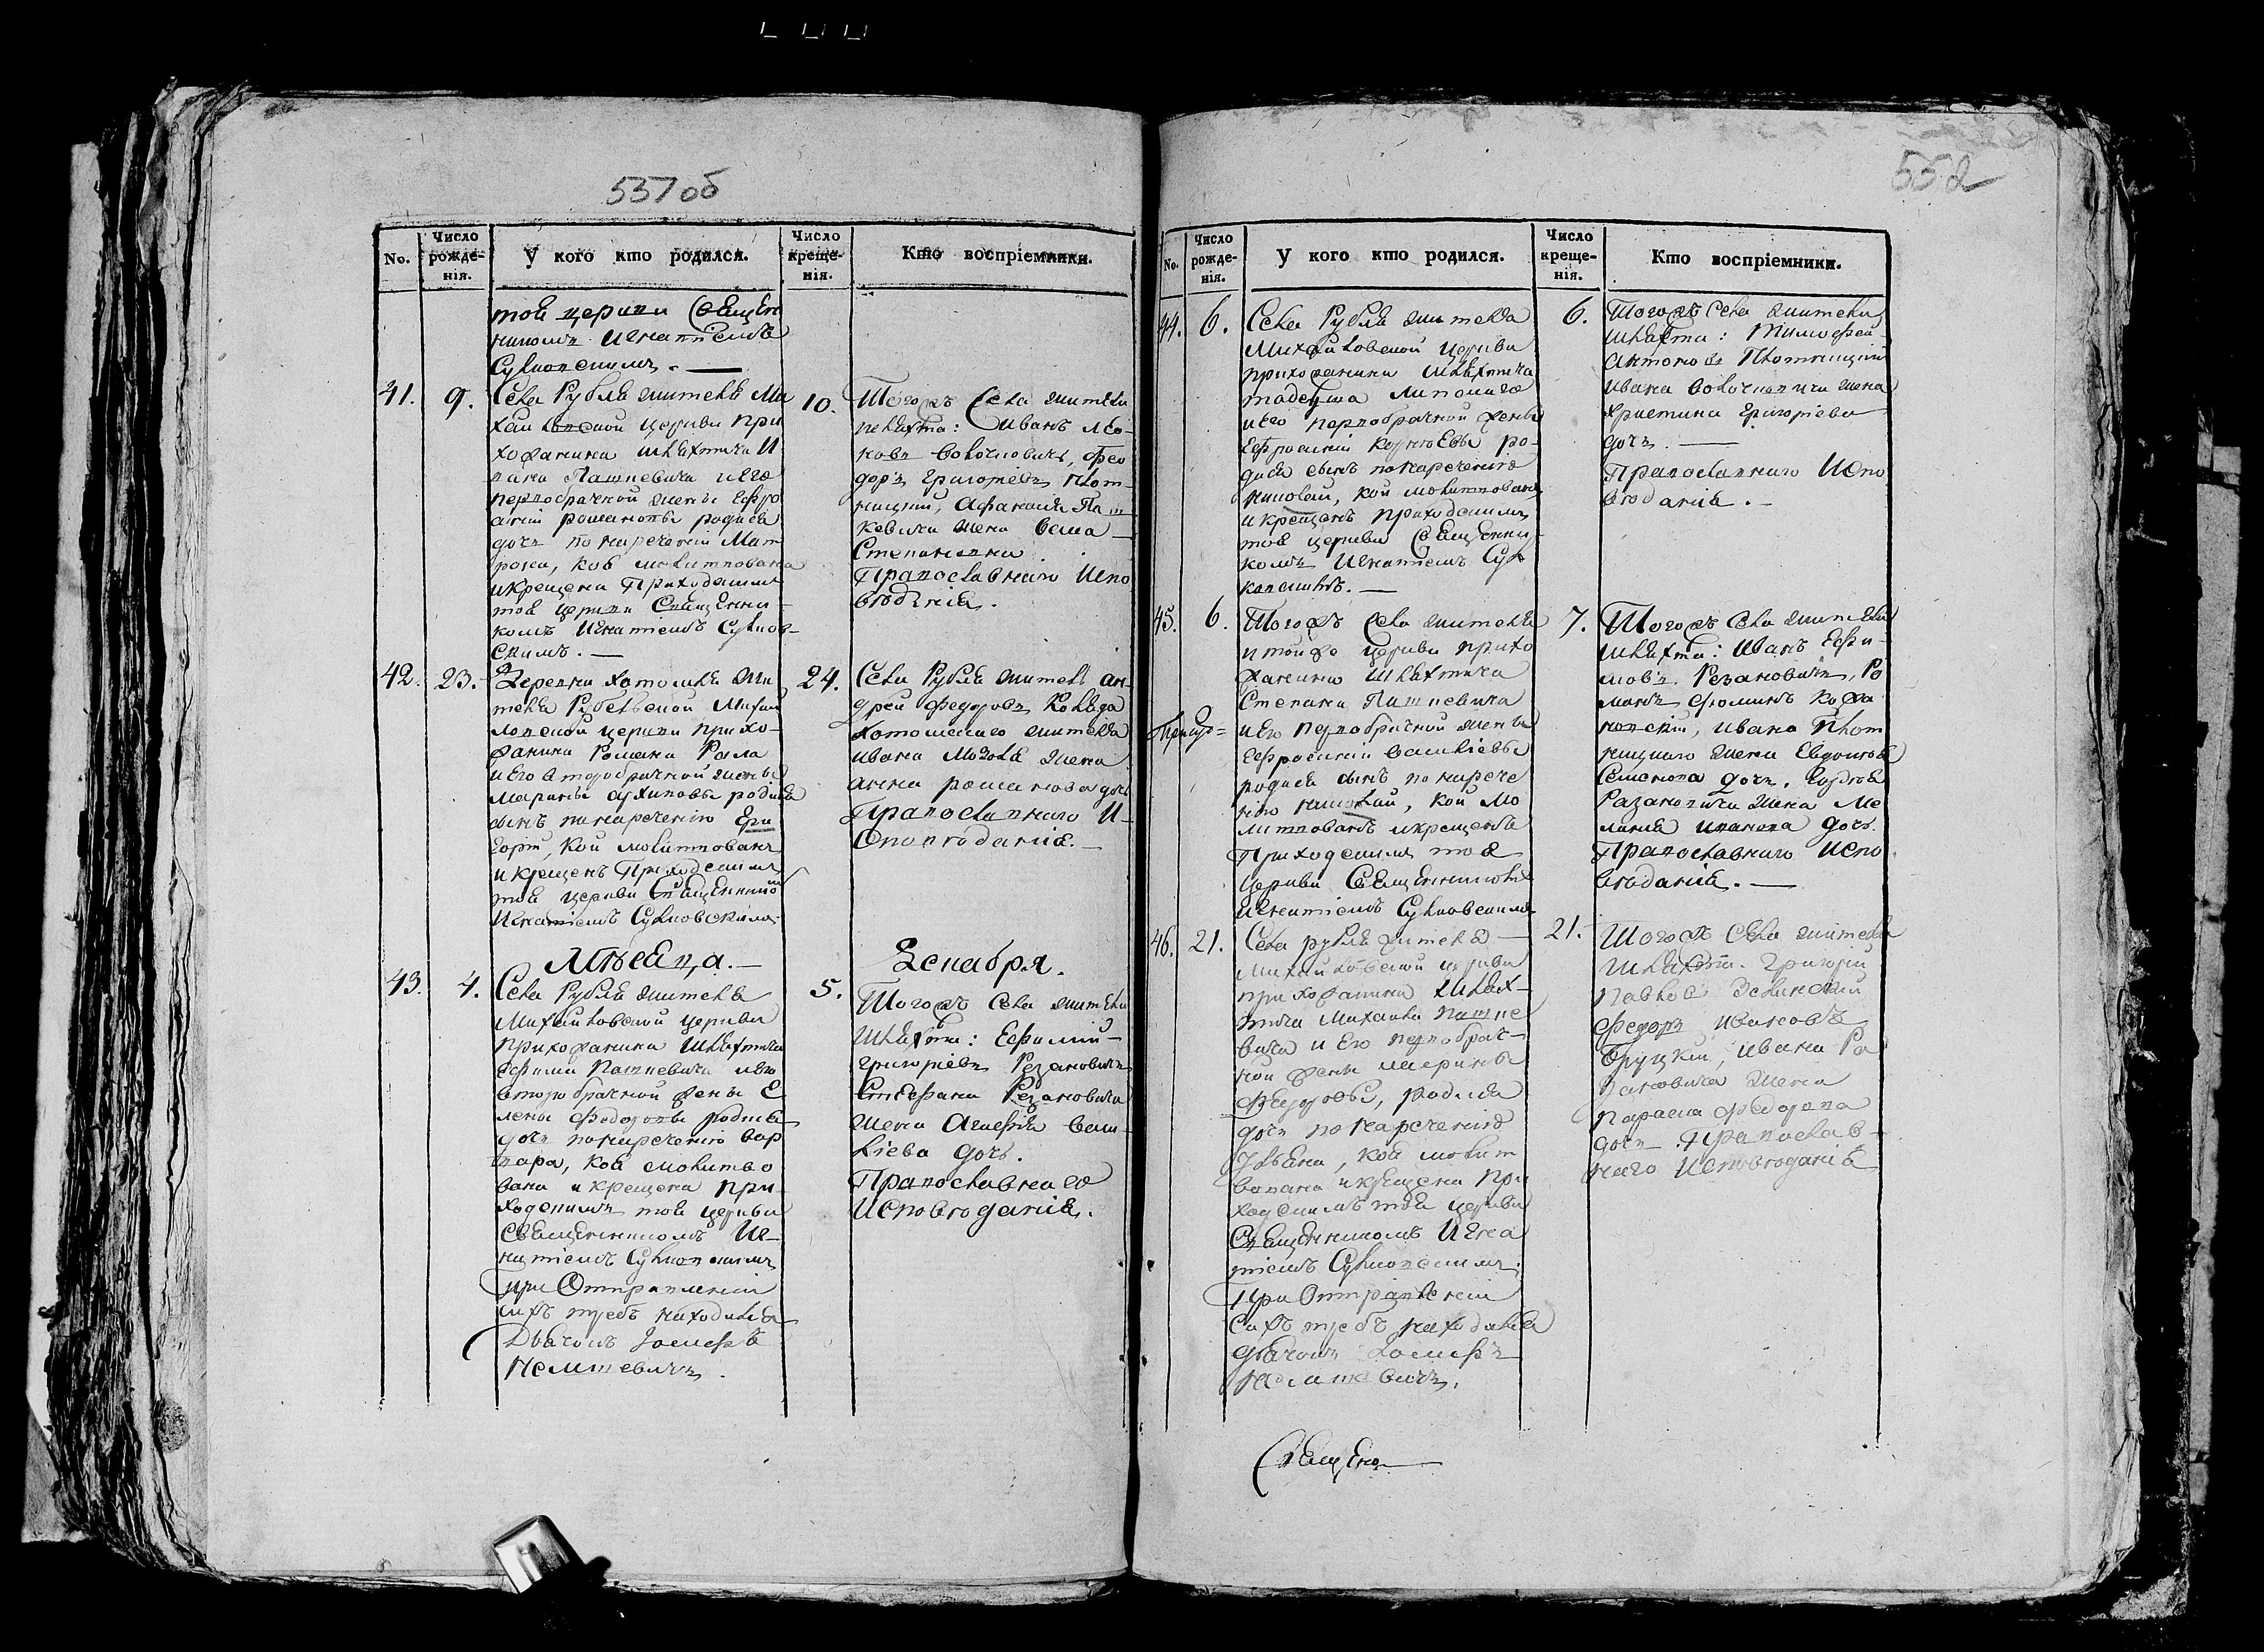 537 об
No.
Число рожде-нія.
У кого кто родился.
Число креще-нія.
Кто воспріемники.
тоя церкви Священ
никомъ Игнатіемъ
Сулковскимъ. —
41.
9.
Села Рубля жителя Ми
хайловской церкви при
хожанина шляхтича И
вана Пашкевича и его
первобрачной жены Ефро
сініи Романовы родися
дочь по нареченію Мат
рона, коя молитвована
и крещена Приходскимъ
тоя церкви Священни
комъ Игнатіемъ Сулков-
скимъ. —
10.
Тогожъ Села жители
шляхта: Иванъ
Волочковичъ, Фео
доръ Григорьевъ Плот-
ницкій, Афанасія Паш
кевича жена Васса
Степановна
Православнаго Испо
вѣданія.
42.
23.
Деревни Хотомля жи
теля Рубельской Михай
ловской церкви прихо-
жанина Романа
и его второбрачной жены
Марины Архиповы родися
сынъ по нареченію Гри
горій, кой молитвованъ
и крещенъ Приходскимъ
тоя церкви Священникомъ
Игнатіемъ Сулковскимъ
24.
Села Рубля житель Ан
дрей Федоровъ Коляда
Хотомскаго жителя
Ивана жена
Анна Романова дочь
Православнаго И-
сповѣданія. —
Мѣсяца. —
Декабря.
43.
4.
Села Рубля жителя
Михайловской церкви
прихожанина Шляхтича
Ефима Пашкевича и его
второбрачной жены Е
лены Федоровы родися
дочь по нареченію Вар
вара, коя молитво
вана и крещена При
ходскимъ тоя церкви
Священникомъ Иг-
натіемъ Сулковскимъ
при Отправленіи
сихъ требъ находился
Дьячокъ Іосифъ
5.
Тогожъ Села жители
Шляхта: Ефимій
Григоріевъ Резановичъ
Стефана Резановича
жена Агафія Васи-
ліева дочь.
Православнаго
Исповѣданія.
552
No.
Число рожде-нія.
У кого кто родился.
Число креще-нія.
Кто воспріемники.
44.
6.
Села Рубля жителя
Михайловской церкви
прихожанина шляхтича
Тадеуша Липскаго
и его первобрачной жены
Ефросиніи Корнѣевы ро-
дися сынъ по нареченію
Николай, кой молитвованъ
и крещенъ приходскимъ
тоя церкви Священни
комъ Игнатіемъ Сул
ковскимъ. —
6.
Тогожъ Села жители
шляхта: Тимофей
Антоновъ Плотницкій
Ивана Волочковича жена
Христина Григорьева
дочь. —
Православнаго Испо
вѣданія. —
45.
6.
Тогожъ Села жителя
и тойже церкви прихо
жанина Шляхтича
Степана Пашкевича
и его первобрачной жены
Ефросиніи Васильевы
родися сынъ по нарече
нію Николай, кой мо
литвованъ и крещенъ
Приходскимъ тоя
церкви Священникомъ
Игнатіемъ Сулковскимъ
7.
Тогожъ Села жители
шляхта: Иванъ Ефи-
мовъ Резановичъ, Ро
манъ Фоминъ Кожа
новскій, Ивана Плот
ницкаго жена Евдокія
Семенова дочь,
Разановича жена Ме
ланія Иванова дочь.
Православнаго Испо
вѣданія. —
46.
21.
Села Рубля жителя —
Михайловской церкви
прихожанина шлях-
тича Михаила Пашке
вича и его первобрач-
ной жены Марины
Федоровы, родися
дочь по нареченію
Ульяна, коя молит
вована и крещена При
ходскимъ тоя церкви
Священникомъ Игна
тіемъ Сулковскимъ.
При Отправленіи
Сихъ требъ находился
дьячокъ Іосифъ
21.
Тогожъ Села жители
Шляхта. Григорій
Павловъ
Федоръ Ивановъ
Бруцкій, Ивана Ра
зановича жена
Параска Федорова
дочь. Православ-
наго Исповѣданія
Священ